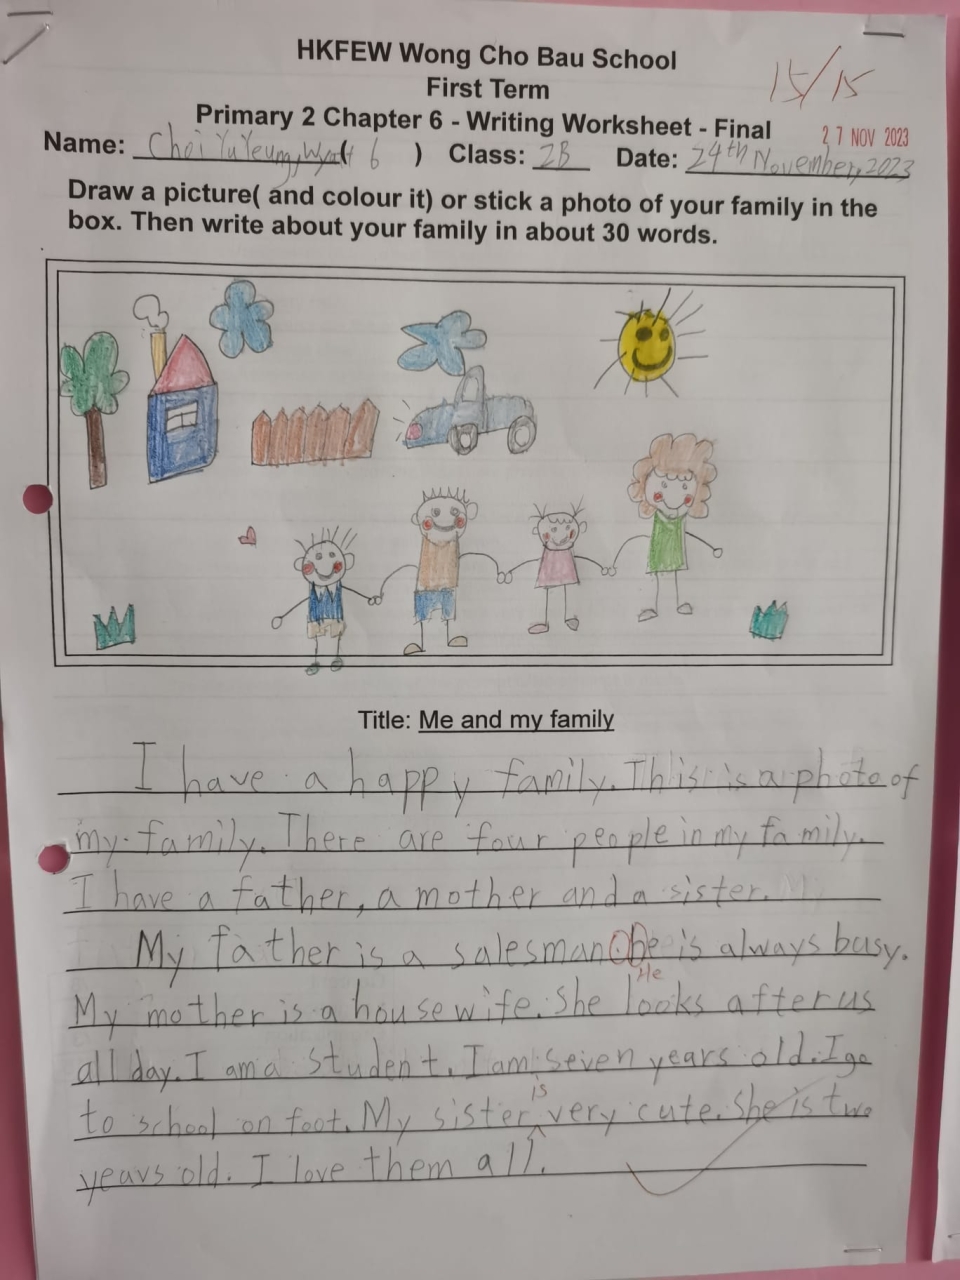 HKFEW Wong Cho Bau School
First Term
15/15
Primary 2 Chapter 6 - Writing Worksheet - Final
27 NOV 2023
Name: Choi Yu Yeung, Wyatt ( 6 ) Class: 2B Date: 24th November, 2023
Draw a picture( and colour it) or stick a photo of your family in the
box. Then write about your family in about 30 words.
Title: Me and my family
I have a happy family. This is a photo of
my family. There are four people in my family.
I have a father, a mother and a sister.
My father is a salesman. he is always busy.
He
My mother is a housewife. She looks after us
all day. I am a student. I am seven years old. I go
is
to school on foot. My sister very cute. She is two
years old. I love them all.